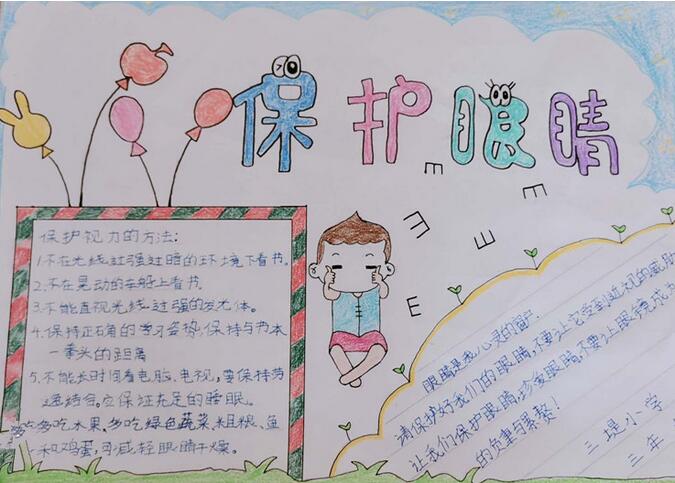 保护眼睛
保护视力的方法:
1.不在光线过强过暗的环境下看书。
2.不在晃动的车船上看书。
3.不能直视光线过强的发光体。
4.保持正确的学习姿势,保持与书本
一拳头的距离
5.不能长时间看电脑、电视,要保持劳
逸结合。保证充足的睡眠。
多吃水果,多吃绿色蔬菜、粗粮、鱼
和鸡蛋,可减轻眼睛干燥。
E
E
E
E
E
眼睛是我心灵的窗户.
请保护好我们的眼睛,不要让它受到近视的威胁
让我们保护眼睛,珍爱眼睛,不要让眼镜成为
的负重与累赘!
三堤小学
三年